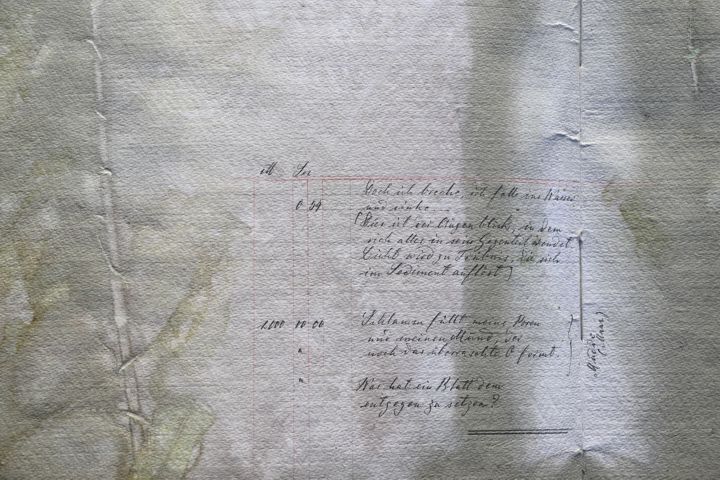 M Sec
Doch ich breche, ich falle ins Wasser
0 44 und sinke....
(Hier ist der Augenblick, in dem
sich alles in sein Gegenteil wendet.
Licht wird zu Dunkel, da sich
im Sediment auflöst.)
1.000 10 00 Schlamm füllt meine Poren
und meinen Mund, der
" noch das überraschte O formt.
" Was hat ein Blatt dem
entgegen zu setzen?